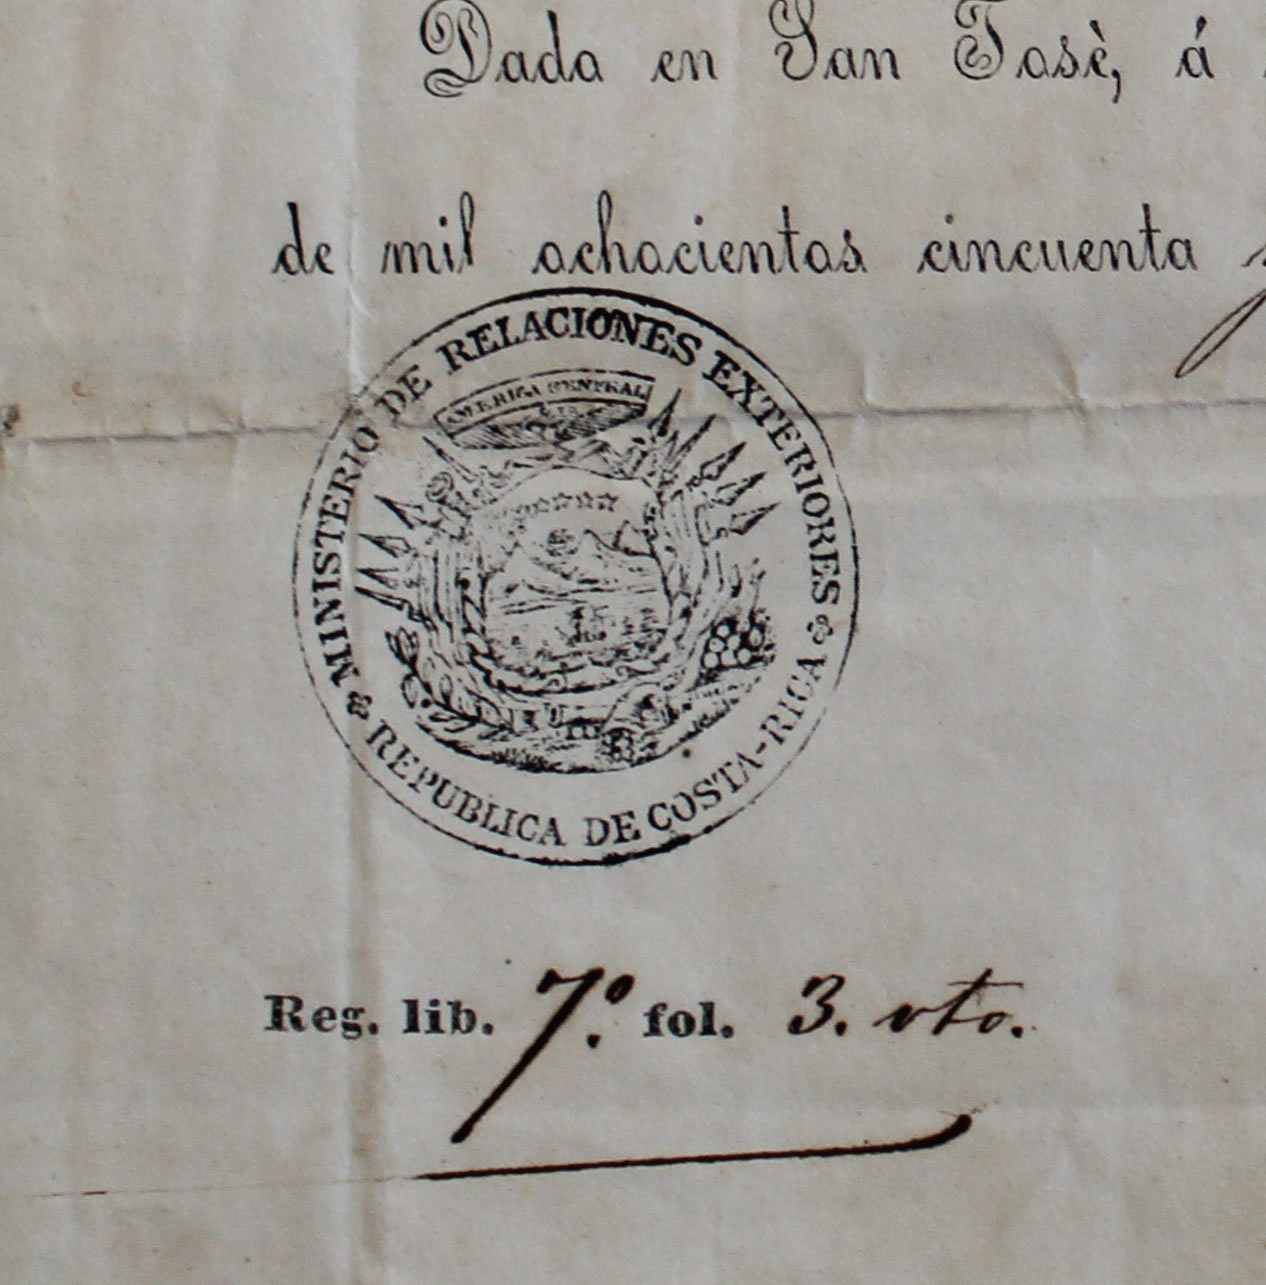 Dada en San Josè, á
de mil ochocientos cincuenta
MINISTERIO DE RELACIONES EXTERIORES
AMERICA CENTRAL
REPUBLICA DE COSTA-RICA
Reg. lib. 7.º fol. 3. vto.